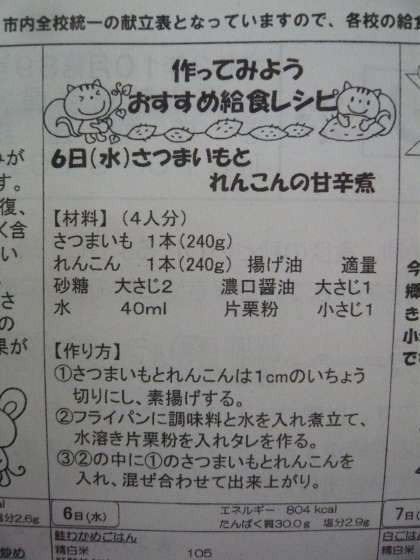 市内全校統一の献立表となっていますので、各校の給食
作ってみよう
おすすめ給食レシピ
6日(水)さつまいもと
れんこんの甘辛煮
【材料】(4人分)
さつまいも 1本(240g)
れんこん 1本(240g) 揚げ油 適量
砂糖 大さじ2 濃口醤油 大さじ1
水 40ml 片栗粉 小さじ1
【作り方】
①さつまいもとれんこんは1cmのいちょう
切りにし、素揚げする。
②フライパンに調味料と水を入れ煮立て、
水溶き片栗粉を入れタレを作る。
③②の中に①のさつまいもとれんこんを
入れ、混ぜ合わせて出来上がり。
塩分2.6g
6日(水)
エネルギー 804 kcal
たんぱく質30.0g 塩分2.9g
7日(
鮭わかめごはん
精白米 105
白ごは
精白米